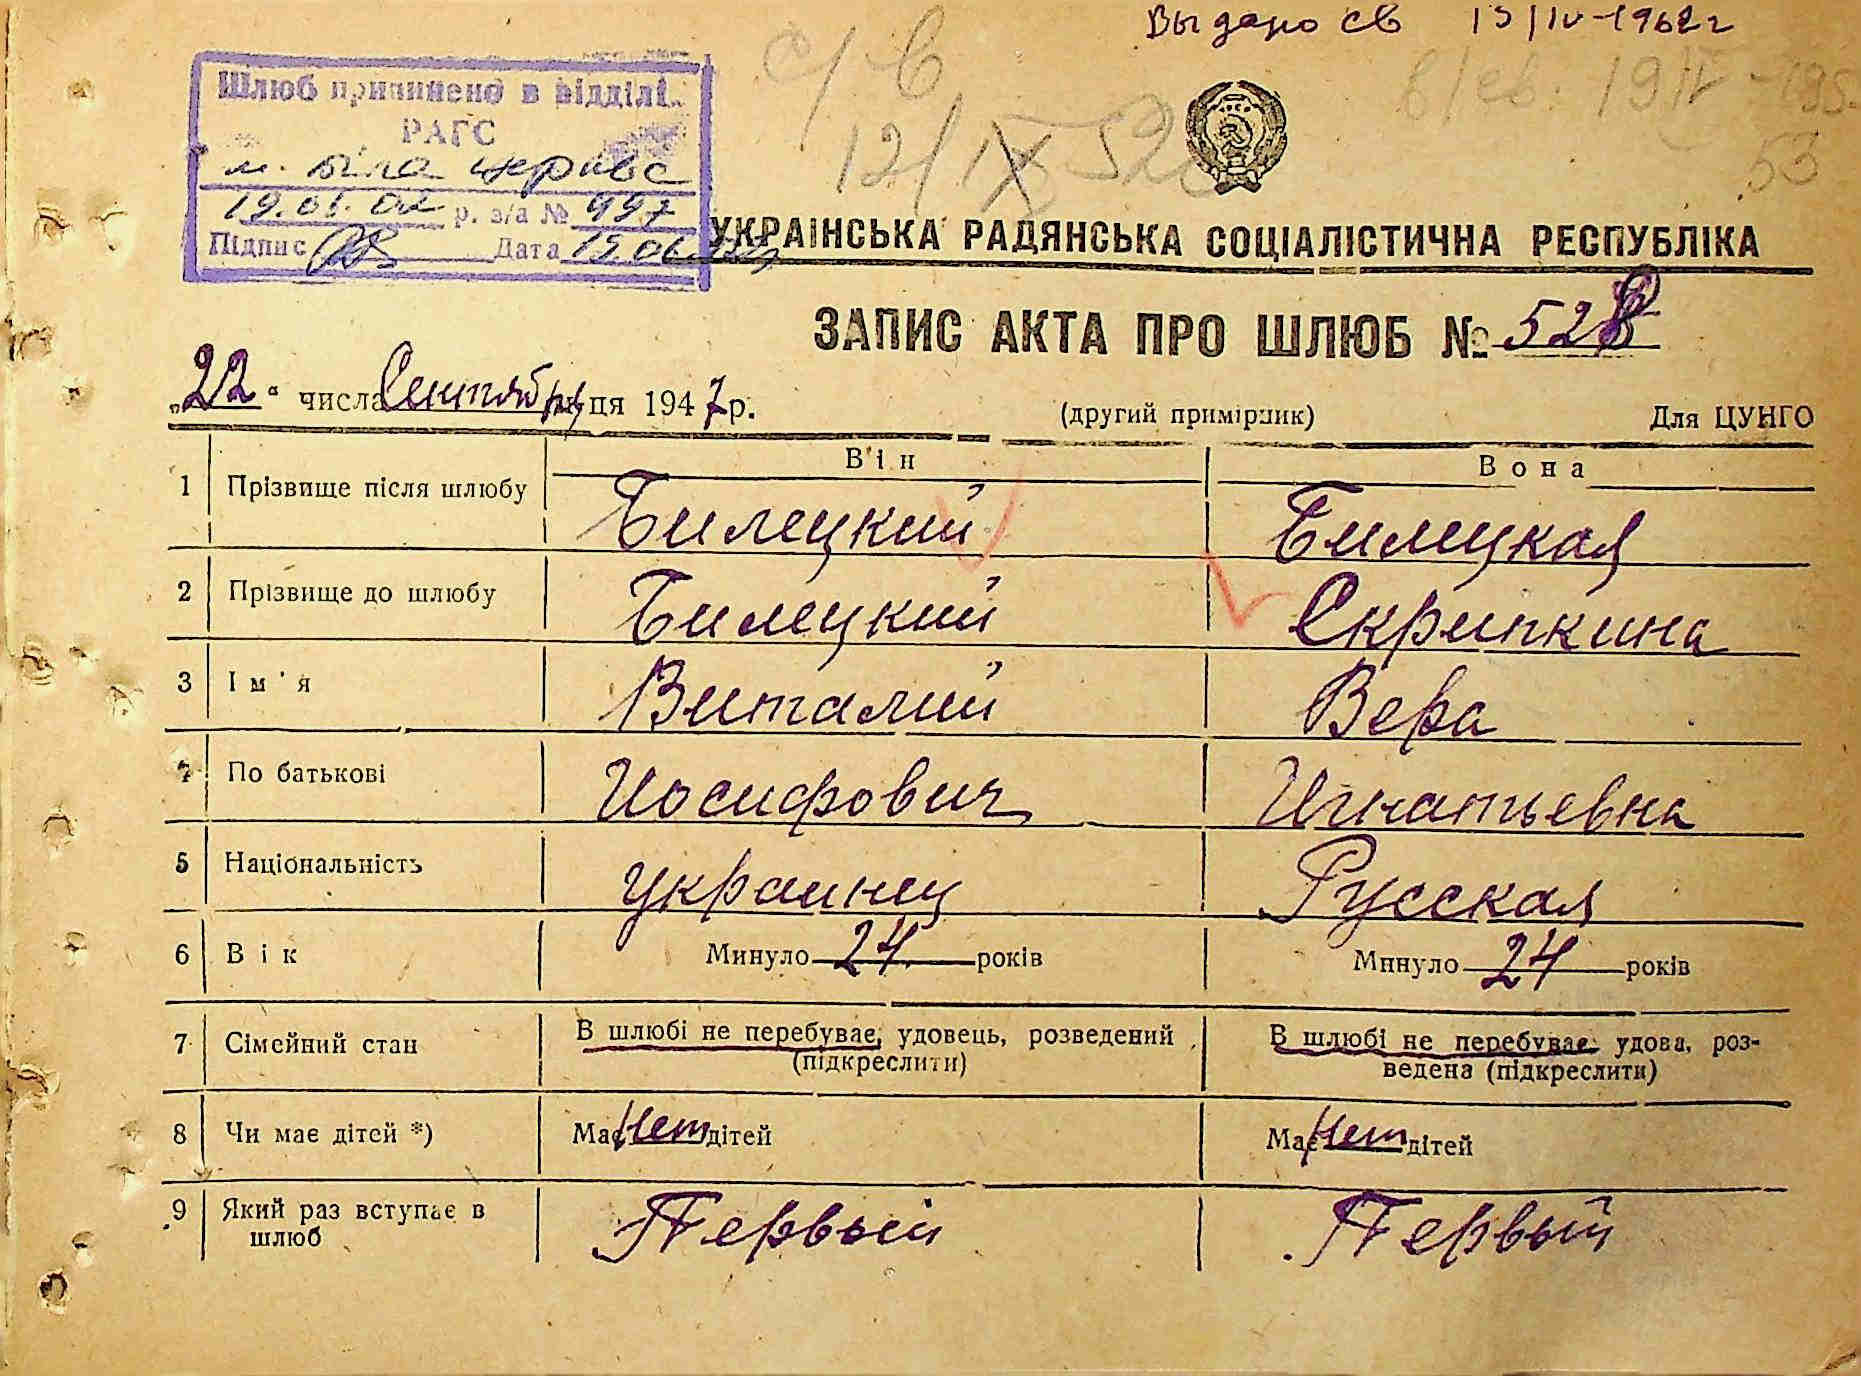 Выдано св 15/IV-1962 г
с/в
12/IX 52
в/св. 19
53
Шлюб припинено в відділі
РАГС
м. Біла церква
19.06.02 р. з/а № 997
Підпис Дата 19.06.
УКРАЇНСЬКА РАДЯНСЬКА СОЦІАЛІСТИЧНА РЕСПУБЛІКА
ЗАПИС АКТА ПРО ШЛЮБ № 528
„22“ числа Сентября місяця 1947 р.
(другий примірник) Для ЦУНГО
Він Вона
1 Прізвище після шлюбу Билецкий Билецкая
2 Прізвище до шлюбу Билецкий Скрипкина
3 Ім'я Виталий Вера
4 По батькові Иосифович Игнатьевна
5 Національність украинец Русская
6 Вік Минуло 24 років Минуло 24 років
7 Сімейний стан В шлюбі не перебуває, удовець, розведений В шлюбі не перебуває, удова, роз-
(підкреслити) ведена (підкреслити)
8 Чи має дітей *) Має Нет дітей Має Нет дітей
9 Який раз вступає в Первый Первый
шлюб